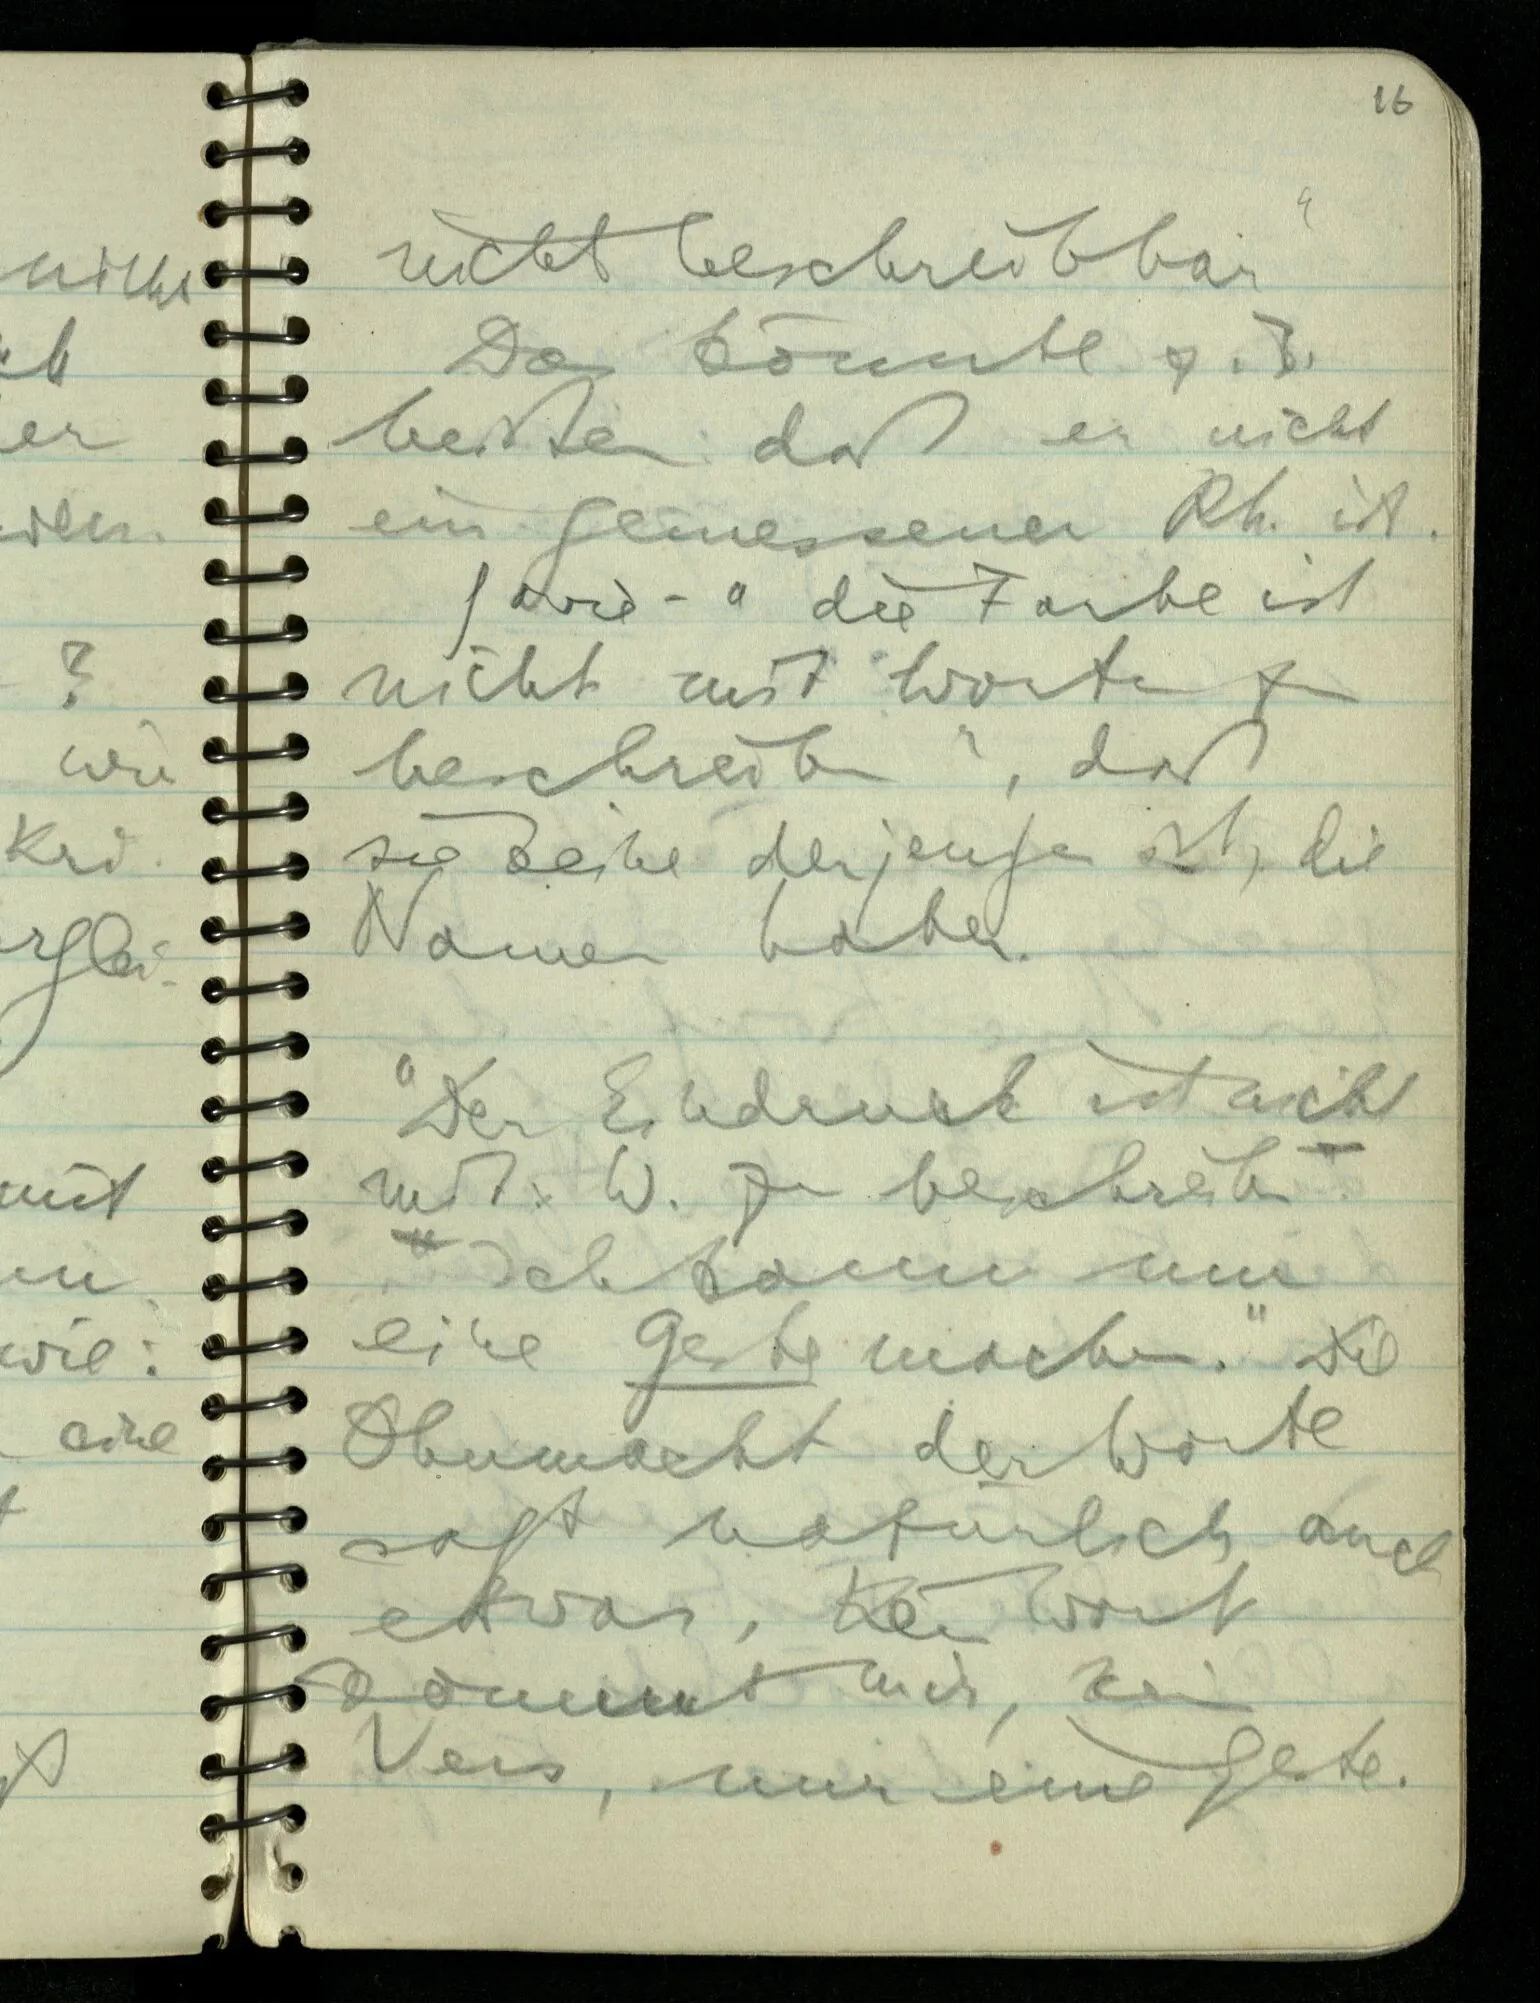 16
nicht beschreibbar"
Das könnte z.B.
heißen daß er nicht
ein gemessener Rh. ist.
sowie - "die Farbe ist
nicht mit Worten zu
beschreiben", daß
sie keine derjenigen ist, die
Namen haben.
"Der Eindruck ist nicht
mit W. zu beschreiben –
Ich kann nur
eine Geste machen." Die
Ohnmacht der Worte
sagt natürlich auch
etwas, kein Wort
kommt mir, kein
Vers, nur eine Geste.
nicht
er
?
wie
Kri.
ergleі-
mit
wie:
eine